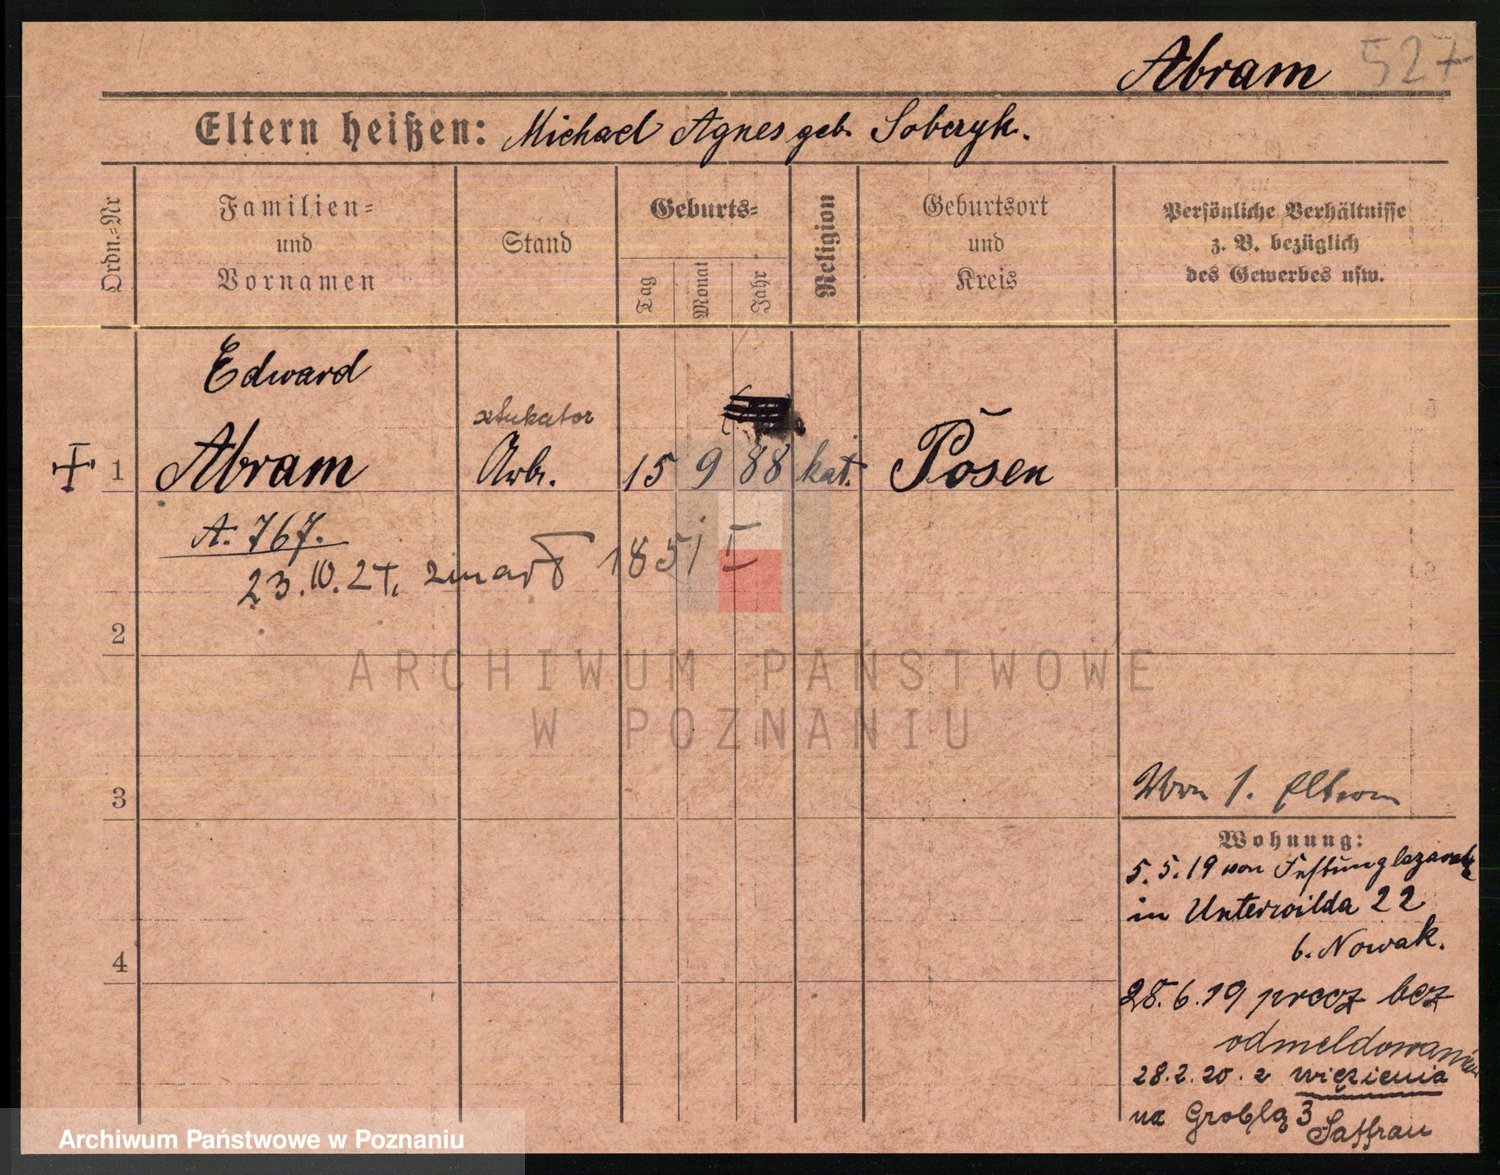 Abram 527
Eltern heißen: Michael Agnes geb. Soberzyk.
Ordn.-Nr
Familien- und Vornamen
Stand
Geburts-
Tag
Monat
Jahr
Religion
Geburtsort und Kreis
Persönliche Verhältnisse z. B. bezüglich des Gewerbes usw.
Edward
sztukator
1 Abram Arb. 15 9 88 kat. Posen
A. 767.
23. IV. 2 zmarł 1851 I
2
ARCHIWUM PAŃSTWOWE
W POZNANIU
3
1. Eltern
Wohnung:
5.5.19 von Festunglazarett
in Unterwilda 22
b. Nowak.
4
28.6.19 precz bez
odmeldowania
28.2.20. z więzienia
na Groblą 3
Saffran
Archiwum Państwowe w Poznaniu